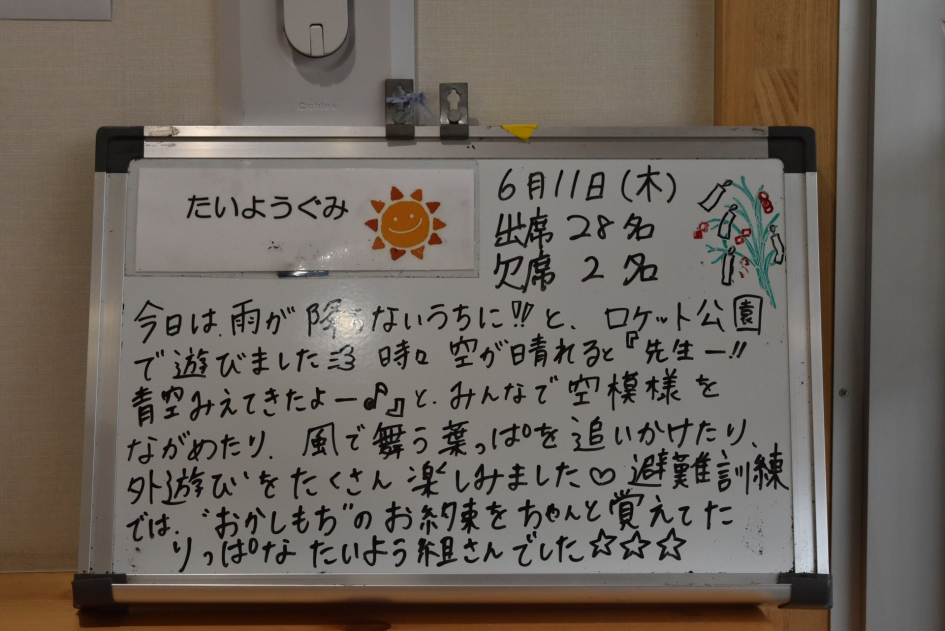 たいようぐみ
6月11日(木)
出席 28名
欠席 2名
今日は、雨が降らないうちに!!と、ロケット公園
で遊びました 時々空が晴れると『先生ー!!
青空みえてきたよー♪』と、みんなで空模様を
ながめたり、風で舞う葉っぱを追いかけたり、
外遊びをたくさん楽しみました♡ 避難訓練
では、"おかしもち"のお約束をちゃんと覚えてた
りっぱなたいよう組さんでした☆☆☆